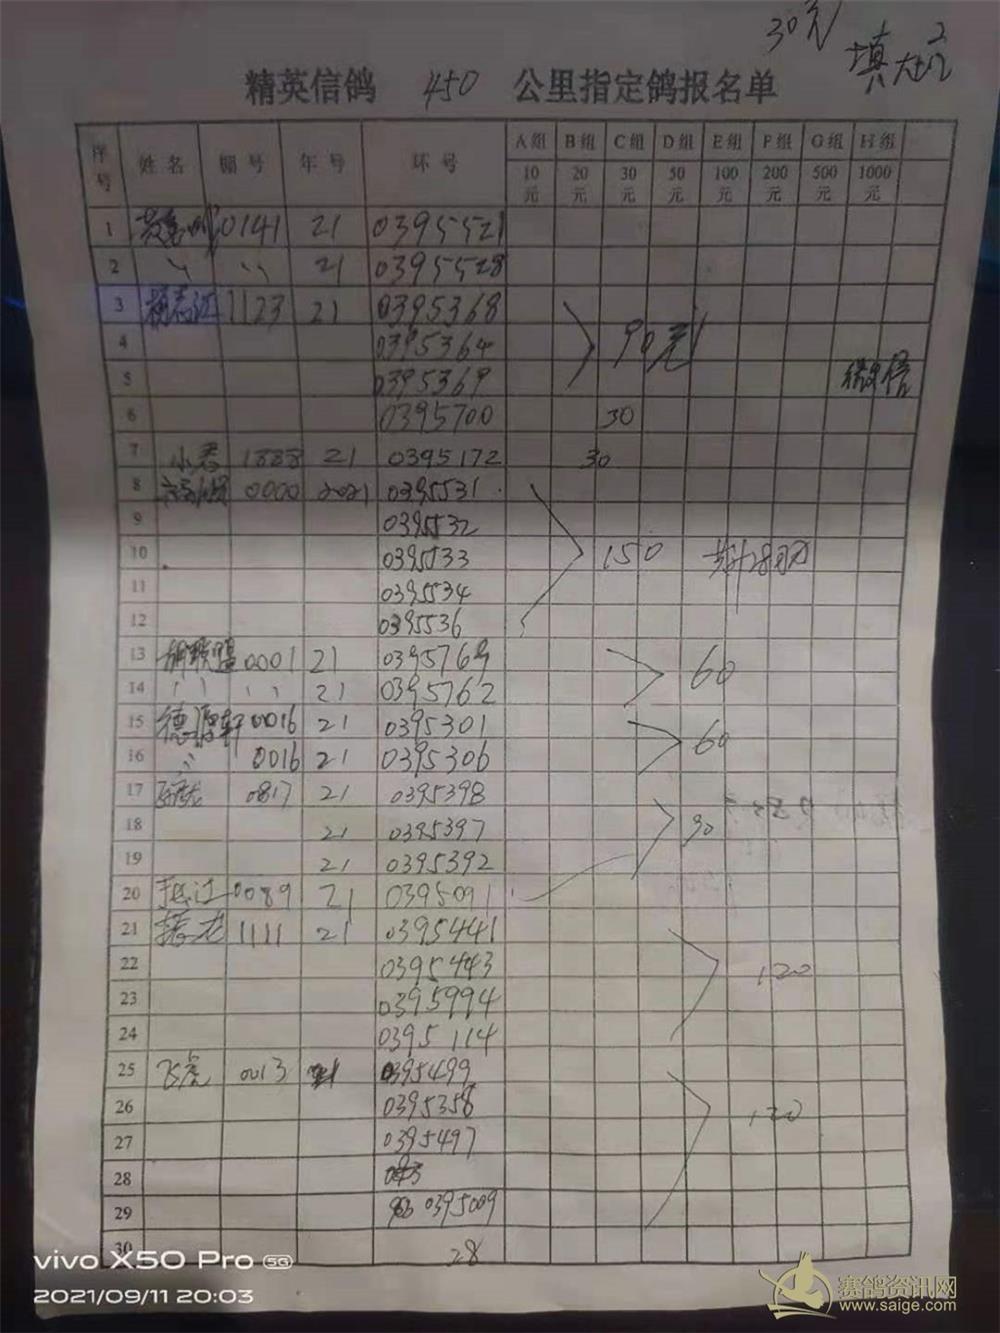 30元
精英信鸽 450 公里指定鸽报名单
序号 姓名 棚号 年号 环号 A组 B组 C组 D组 E组 F组 G组 H组
10元 20元 30元 50元 100元 200元 500元 1000元
1 0141 21 0395521
2 〃 〃 21 0395528
3 杨志江 1123 21 0395368
4 0395364 90元
5 0395369 微信
6 0395700 30
7 小春 1888 21 0395172 30
8 0000 2021 0395531
9 0395532
10 0395533 150 共计28羽
11 0395534
12 0395536
13 胡联盟 0001 21 0395769 60
14 〃 〃 21 0395762
15 德源轩 0016 21 0395301 60
16 〃 0016 21 0395306
17 0817 21 0395398
18 21 0395397 90
19 21 0395392
20 0089 21 0395091
21 1111 21 0395441
22 0395443 120
23 0395994
24 0395114
25 飞虎 0013 21 0395499
26 0395358 120
27 0395497
28
29 0395009
30 28
vivo X50 Pro 5G
2021/09/11 20:03
赛鸽资讯网
www.saige.com